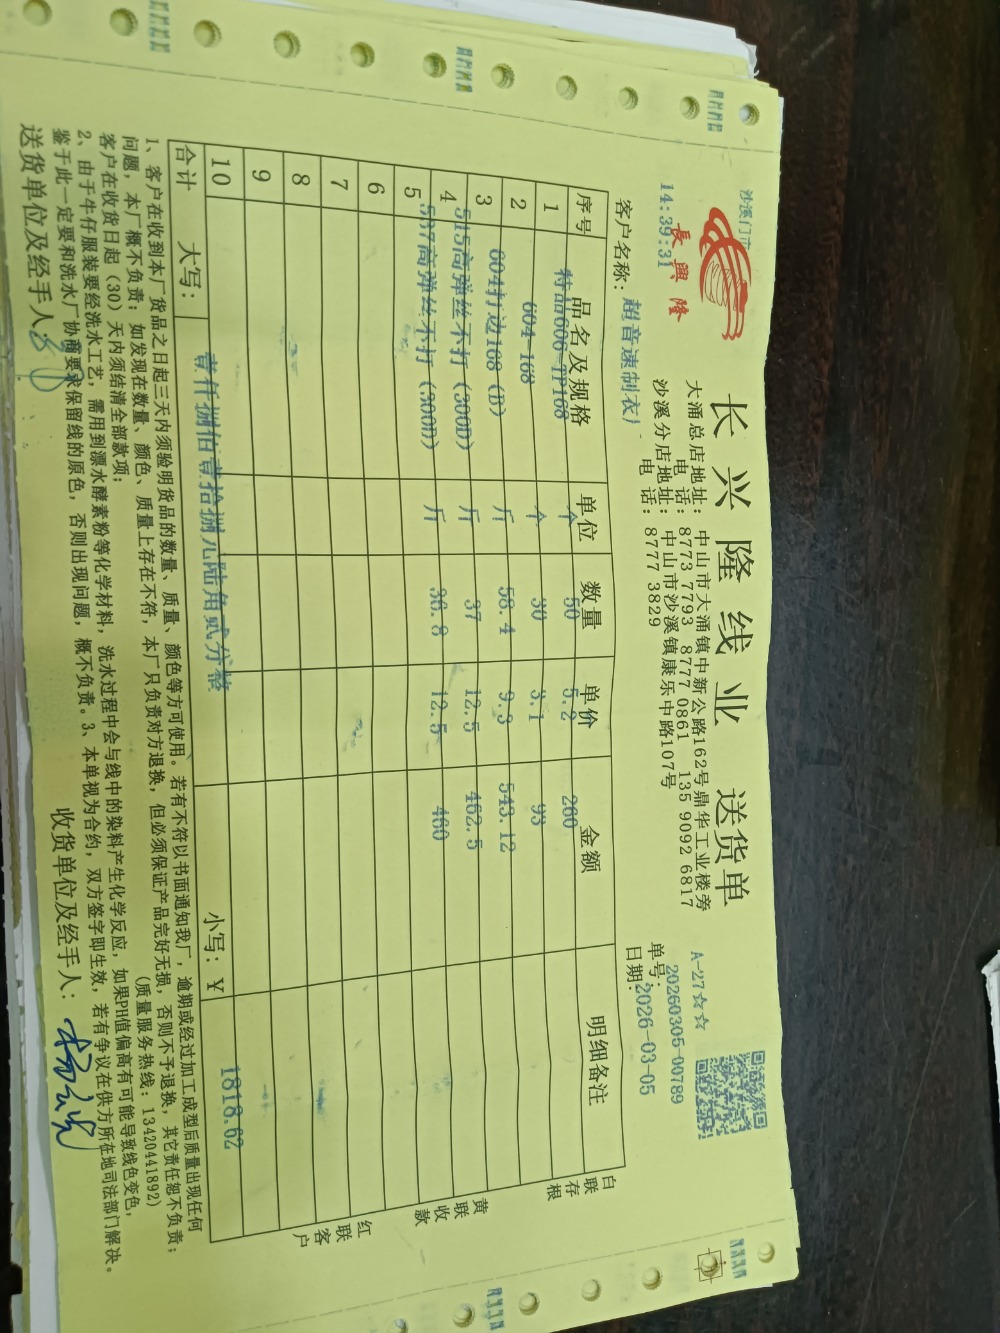 沙溪门市
14:39:31
長興隆
长兴隆线业 送货单
大涌总店地址: 中山市大涌镇中新公路162号鼎华工业楼旁
电 话: 8773 7793 8777 0861 135 9092 6817
沙溪分店地址: 中山市沙溪镇康乐中路107号
电 话: 8777 3829
A-27☆☆
单号: 20260305-00789
日期: 2026-03-05
客户名称: 超音速制衣厂
序号 品名及规格 单位 数量 单价 金额 明细备注
1 特品606-TP168 个 50 5.2 260
2 604-168 个 30 3.1 93
3 604打边168 (B) 斤 58.4 9.3 543.12
4 515高弹丝不打 (300D) 斤 37 12.5 462.5
5 597高弹丝不打 (300D) 斤 36.8 12.5 460
6
7
8
9
10
合计 大写: 壹仟捌佰壹拾捌元陆角贰分整 小写: ¥ 1818.62
白联存根
黄联收款
红联客户
1、客户在收到本厂货品之日起三天内须验明货品的数量、质量、颜色等方可使用。若有不符以书面通知我厂, 逾期或经过加工成型后质量出现任何
问题, 本厂概不负责; 如发现在数量、颜色、质量上存在不符, 本厂只负责对方退换, 但必须保证产品完好无损, 否则不予退换, 其它责任恕不负责;
客户在收货日起 (30) 天内须结清全部款项; (质量服务热线: 13420441892)
2、由于牛仔服装要经洗水工艺, 需用到漂水酵素粉等化学材料, 洗水过程中会与线中的染料产生化学反应, 如果PH值偏高有可能导致线色变色,
鉴于此一定要和洗水厂协商要求保留线的原色, 否则出现问题, 概不负责。3、本单视为合约, 双方签字即生效, 若有争议在供方所在地司法部门解决。
送货单位及经手人: 收货单位及经手人: